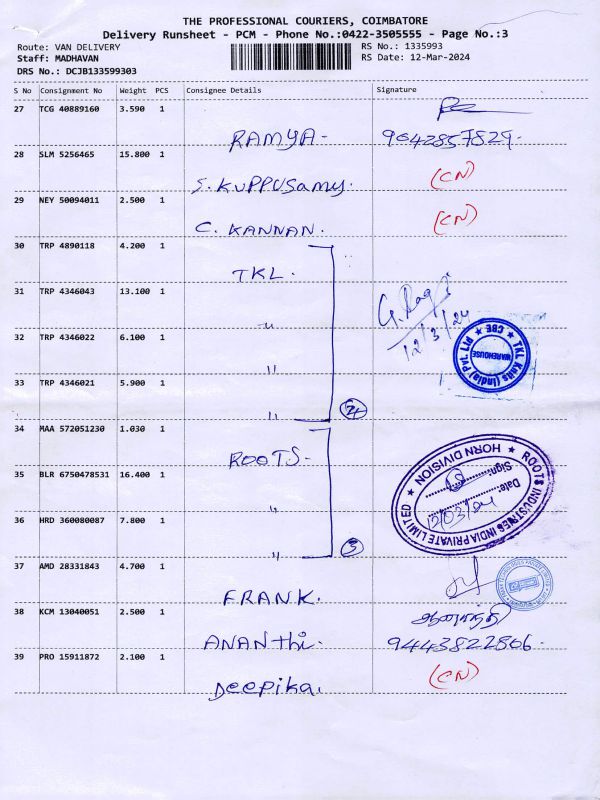 THE PROFESSIONAL COURIERS, COIMBATORE
Delivery Runsheet - PCM - Phone No.:0422-3505555 - Page No.:3
Route: VAN DELIVERY
RS No.: 1335993
Staff: MADHAVAN
RS Date: 12-Mar-2024
DRS No.: DCJB133599303
S No Consignment No Weight PCS Consignee Details Signature
27 TCG 40889160 3.590 1
RAMYA- 9042857829.
28 SLM 5256465 15.800 1
S. KUPPUSAMY. (CN)
29 NEY 50094011 2.500 1
C. KANNAN. (CN)
30 TRP 4890118 4.200 1
TKL.
31 TRP 4346043 13.100 1
12/3/24
〃
32 TRP 4346022 6.100 1
TKL Knits (India) Pvt. Ltd ★ CBE ★
WAREHOUSE
〃
33 TRP 4346021 5.900 1
〃
34 MAA 572051230 1.030 1
ROOTS-
35 BLR 6750478531 16.400 1
ROOTS INDUSTRIES INDIA PRIVATE LIMITED ★ HORN DIVISION ★
Sign:
Date: 12/03/24
36 HRD 360080087 7.800 1
〃 3
37 AMD 28331843 4.700 1
FRANK.
38 KCM 13040051 2.500 1
ஆனந்தி
ANANthi. 9443822806.
39 PRO 15911872 2.100 1
Deepika. (CN)